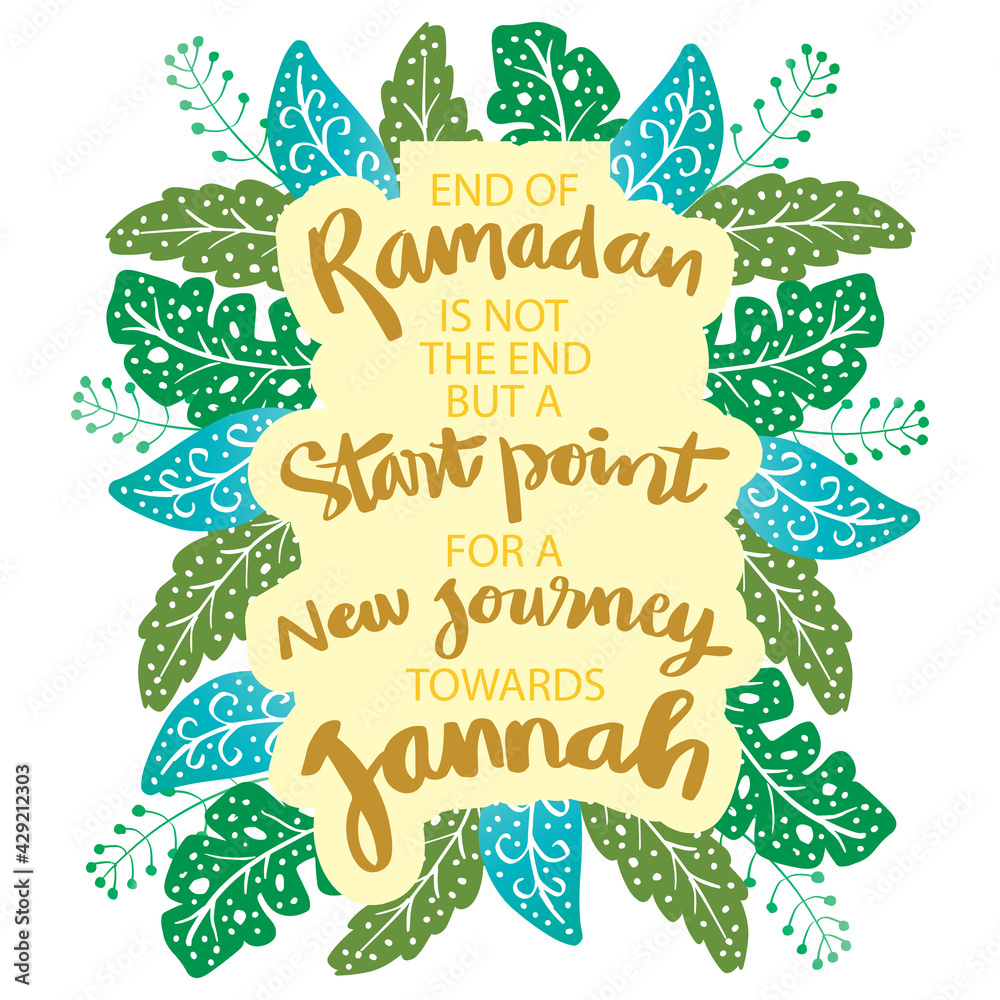 END OF
Ramadan
IS NOT
THE END
BUT A
Start point
FOR A
New Journey
TOWARDS
Jannah
Adobe Stock | #429212303
Adobe Stock